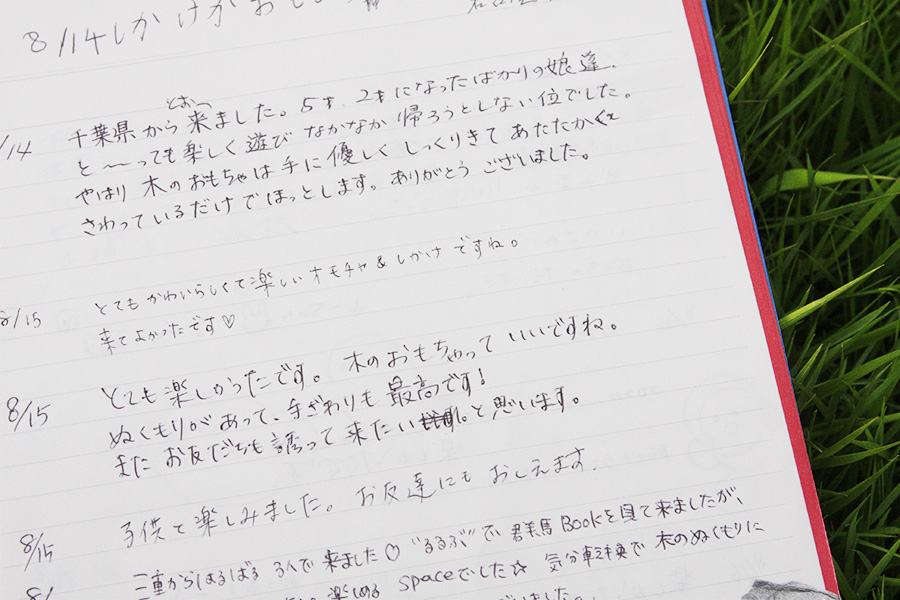 8/14 しかけがおも
8/14 千葉県から とおーく 来ました。5才、2才になったばかりの娘達、
と〜〜っても楽しく遊び なかなか帰ろうとしない位でした。
やはり 木のおもちゃは手に優しく しっくりきて あたたかくて
さわっているだけでほっとします。ありがとう ございました。
8/15 とてもかわいらしくて楽しいオモチャ&しかけですね。
来てよかったです♡
8/15 とても楽しかったです。木のおもちゃって いいですね。
ぬくもりがあって、手ざわりも最高です!
また お友だちも誘って来たい と思います。
8/15 子供と楽しみました。お友達にも おしえます。
8/ 三重からはるばる 3人で来ました♡ "るるぶ"で 群馬Bookを見て来ましたが、
楽しめる spaceでした☆ 気分転換で 木のぬくもりに
ました。